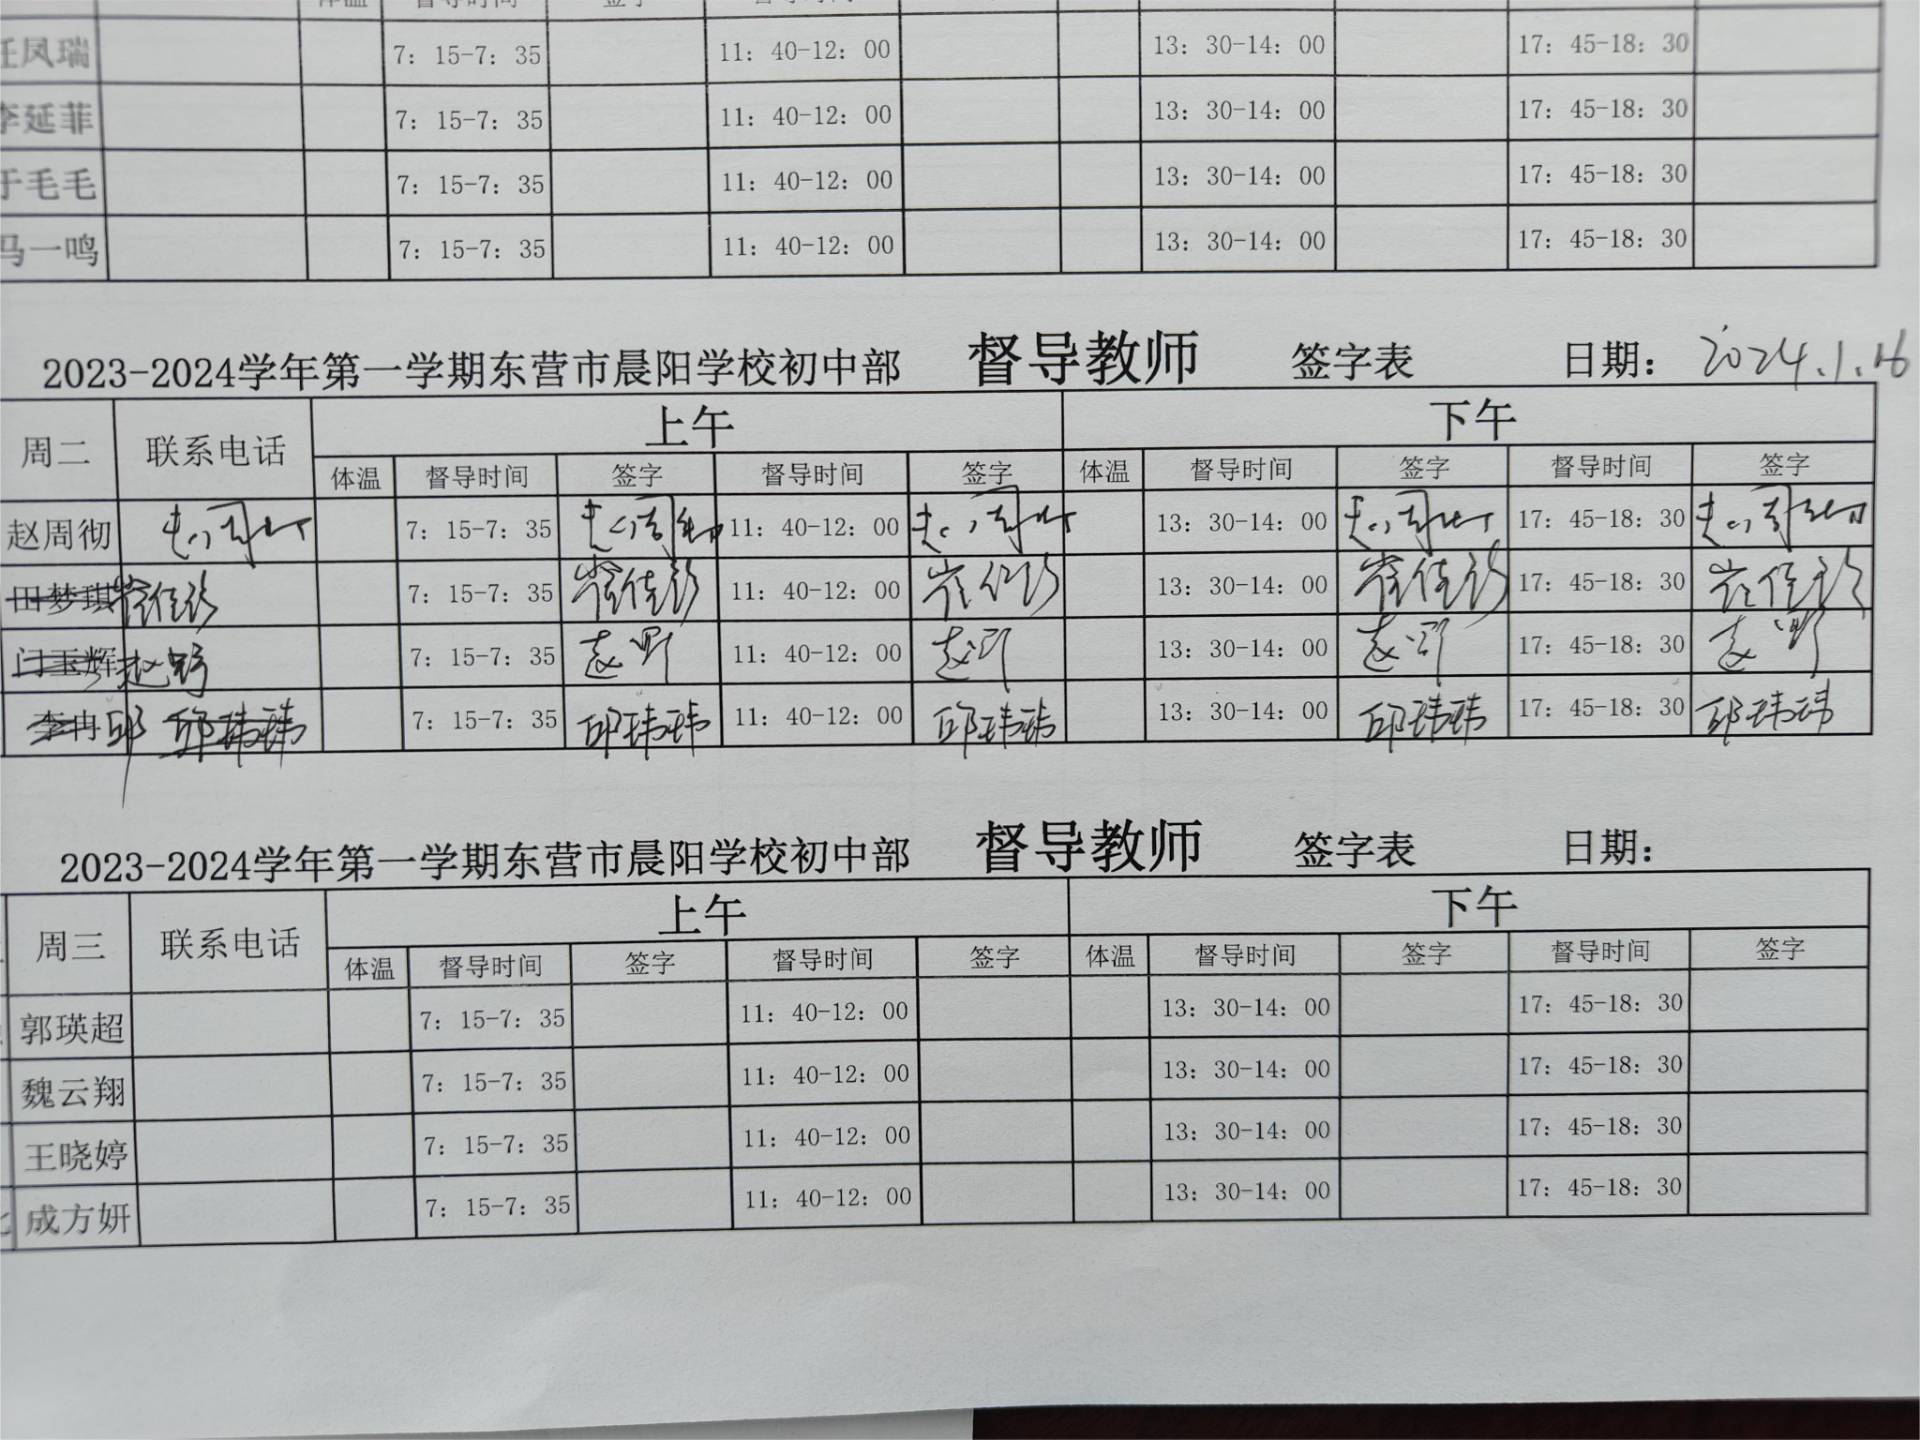 体温 督导时间 签字 督导时间
任凤瑞 7：15-7：35 11：40-12：00 13：30-14：00 17：45-18：30
李延菲 7：15-7：35 11：40-12：00 13：30-14：00 17：45-18：30
于毛毛 7：15-7：35 11：40-12：00 13：30-14：00 17：45-18：30
马一鸣 7：15-7：35 11：40-12：00 13：30-14：00 17：45-18：30
2023-2024学年第一学期东营市晨阳学校初中部 督导教师 签字表 日期：2024.1.16
周二 联系电话 上午 下午
体温 督导时间 签字 督导时间 签字 体温 督导时间 签字 督导时间 签字
赵周彻 7：15-7：35 11：40-12：00 13：30-14：00 17：45-18：30
田梦琪 7：15-7：35 11：40-12：00 13：30-14：00 17：45-18：30
闫玉辉 7：15-7：35 11：40-12：00 13：30-14：00 17：45-18：30
李冉 邱 邱玮玮 7：15-7：35 邱玮玮 11：40-12：00 邱玮玮 13：30-14：00 邱玮玮 17：45-18：30 邱玮玮
2023-2024学年第一学期东营市晨阳学校初中部 督导教师 签字表 日期：
周三 联系电话 上午 下午
体温 督导时间 签字 督导时间 签字 体温 督导时间 签字 督导时间 签字
郭瑛超 7：15-7：35 11：40-12：00 13：30-14：00 17：45-18：30
魏云翔 7：15-7：35 11：40-12：00 13：30-14：00 17：45-18：30
王晓婷 7：15-7：35 11：40-12：00 13：30-14：00 17：45-18：30
成方妍 7：15-7：35 11：40-12：00 13：30-14：00 17：45-18：30